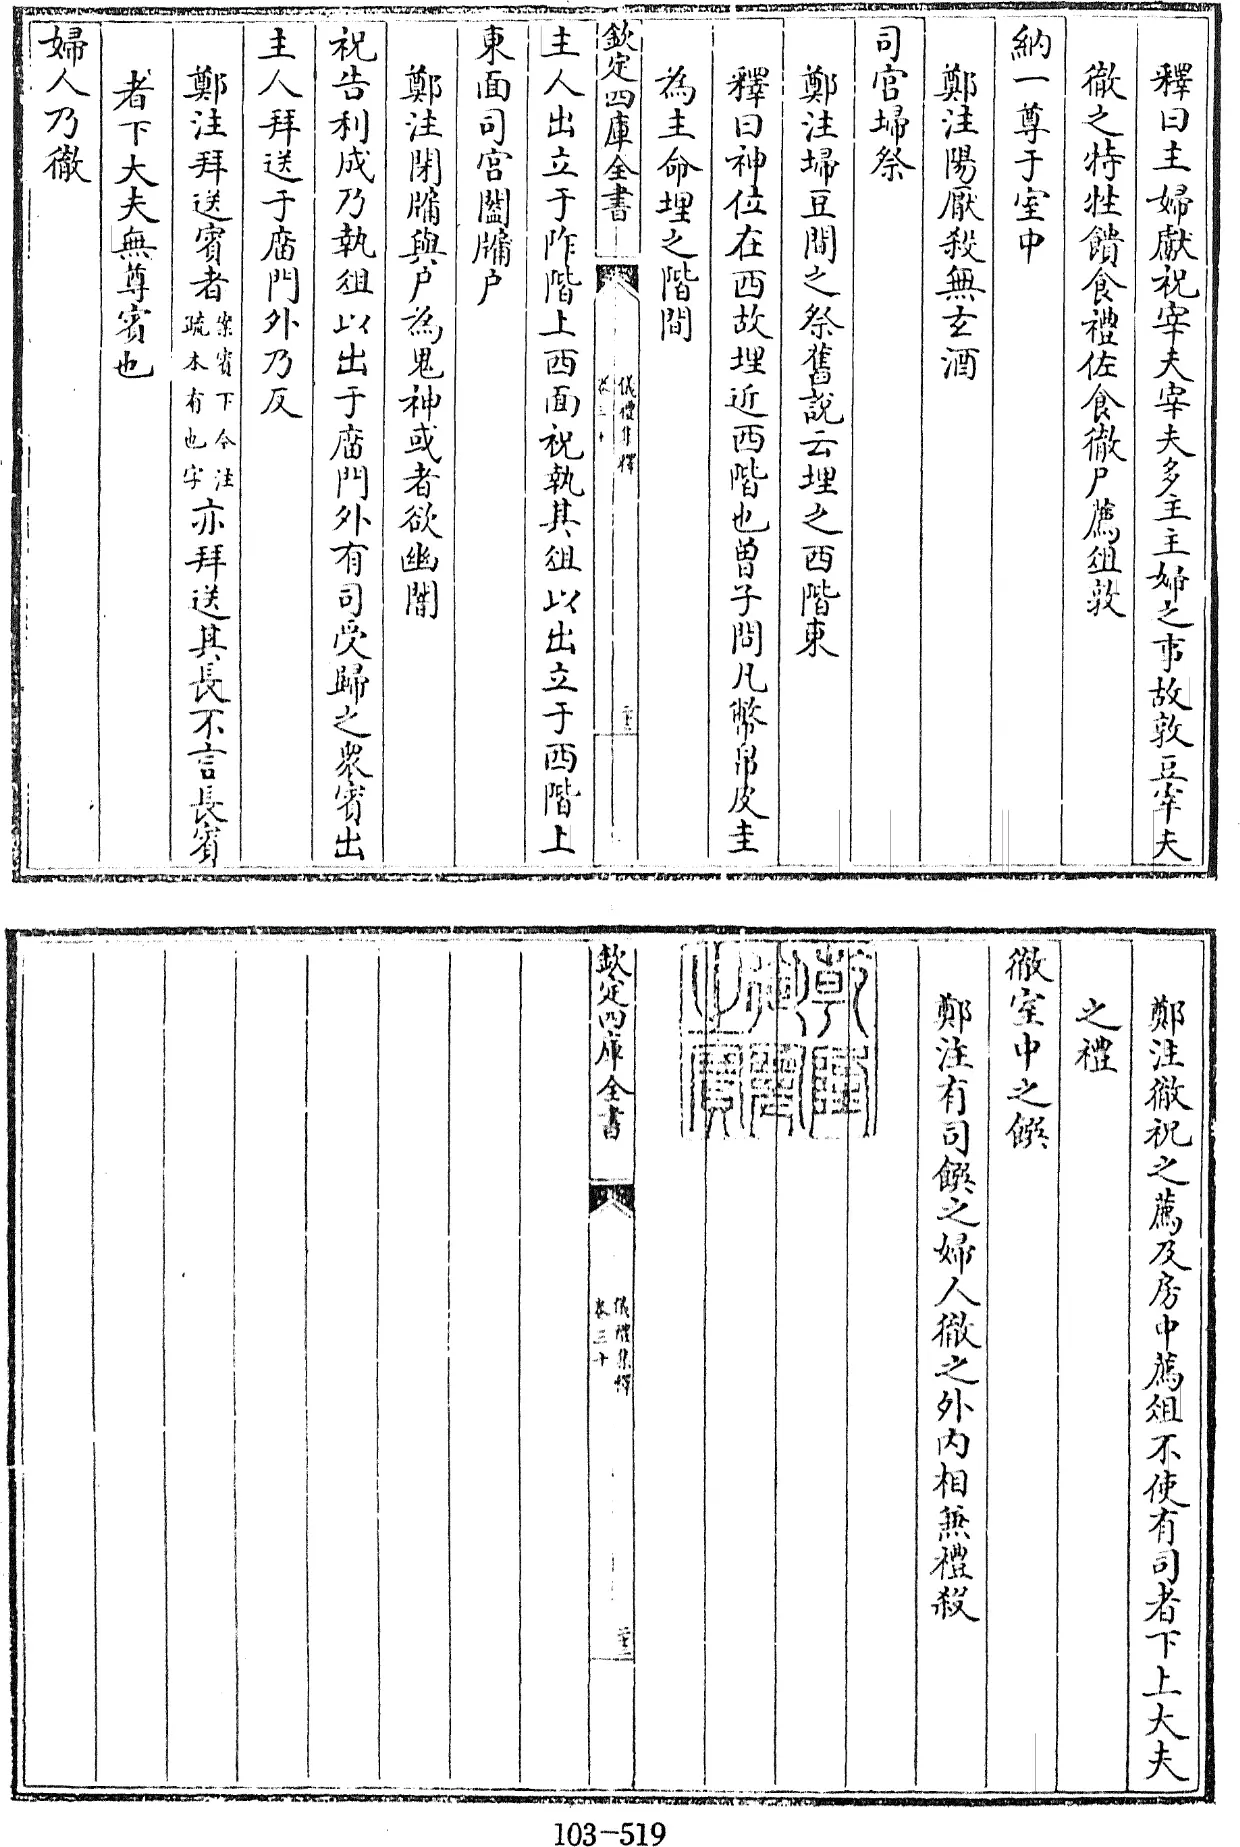 釋曰主婦獻祝宰夫宰夫多主主婦之事故敦豆宰夫
徹之特牲饋食禮佐食徹尸薦俎敦
納一尊于室中
鄭注陽厭殺無玄酒
司官埽祭
鄭注埽豆間之祭舊說云埋之西階東
釋曰神位在西故埋近西階也曾子問凡幣帛皮圭
為主命埋之階間
欽定四庫全書
儀禮集釋
卷三十
主人出立于阼階上西面祝執其俎以出立于西階上
東面司宮闔牖户
鄭注閉牖與户為鬼神或者欲幽闇
祝告利成乃執俎以出于廟門外有司受歸之衆賓出
主人拜送于廟門外乃反
鄭注拜送賓者案賓下今注疏本有也字亦拜送其長不言長賓
者下大夫無尊賓也
婦人乃徹
鄭注徹祝之薦及房中薦俎不使有司者下上大夫
之禮
徹室中之饌
鄭注有司饌之婦人徹之外內相兼禮殺
乾隆御覽之寶
欽定四庫全書
儀禮集釋
卷三十
103-519